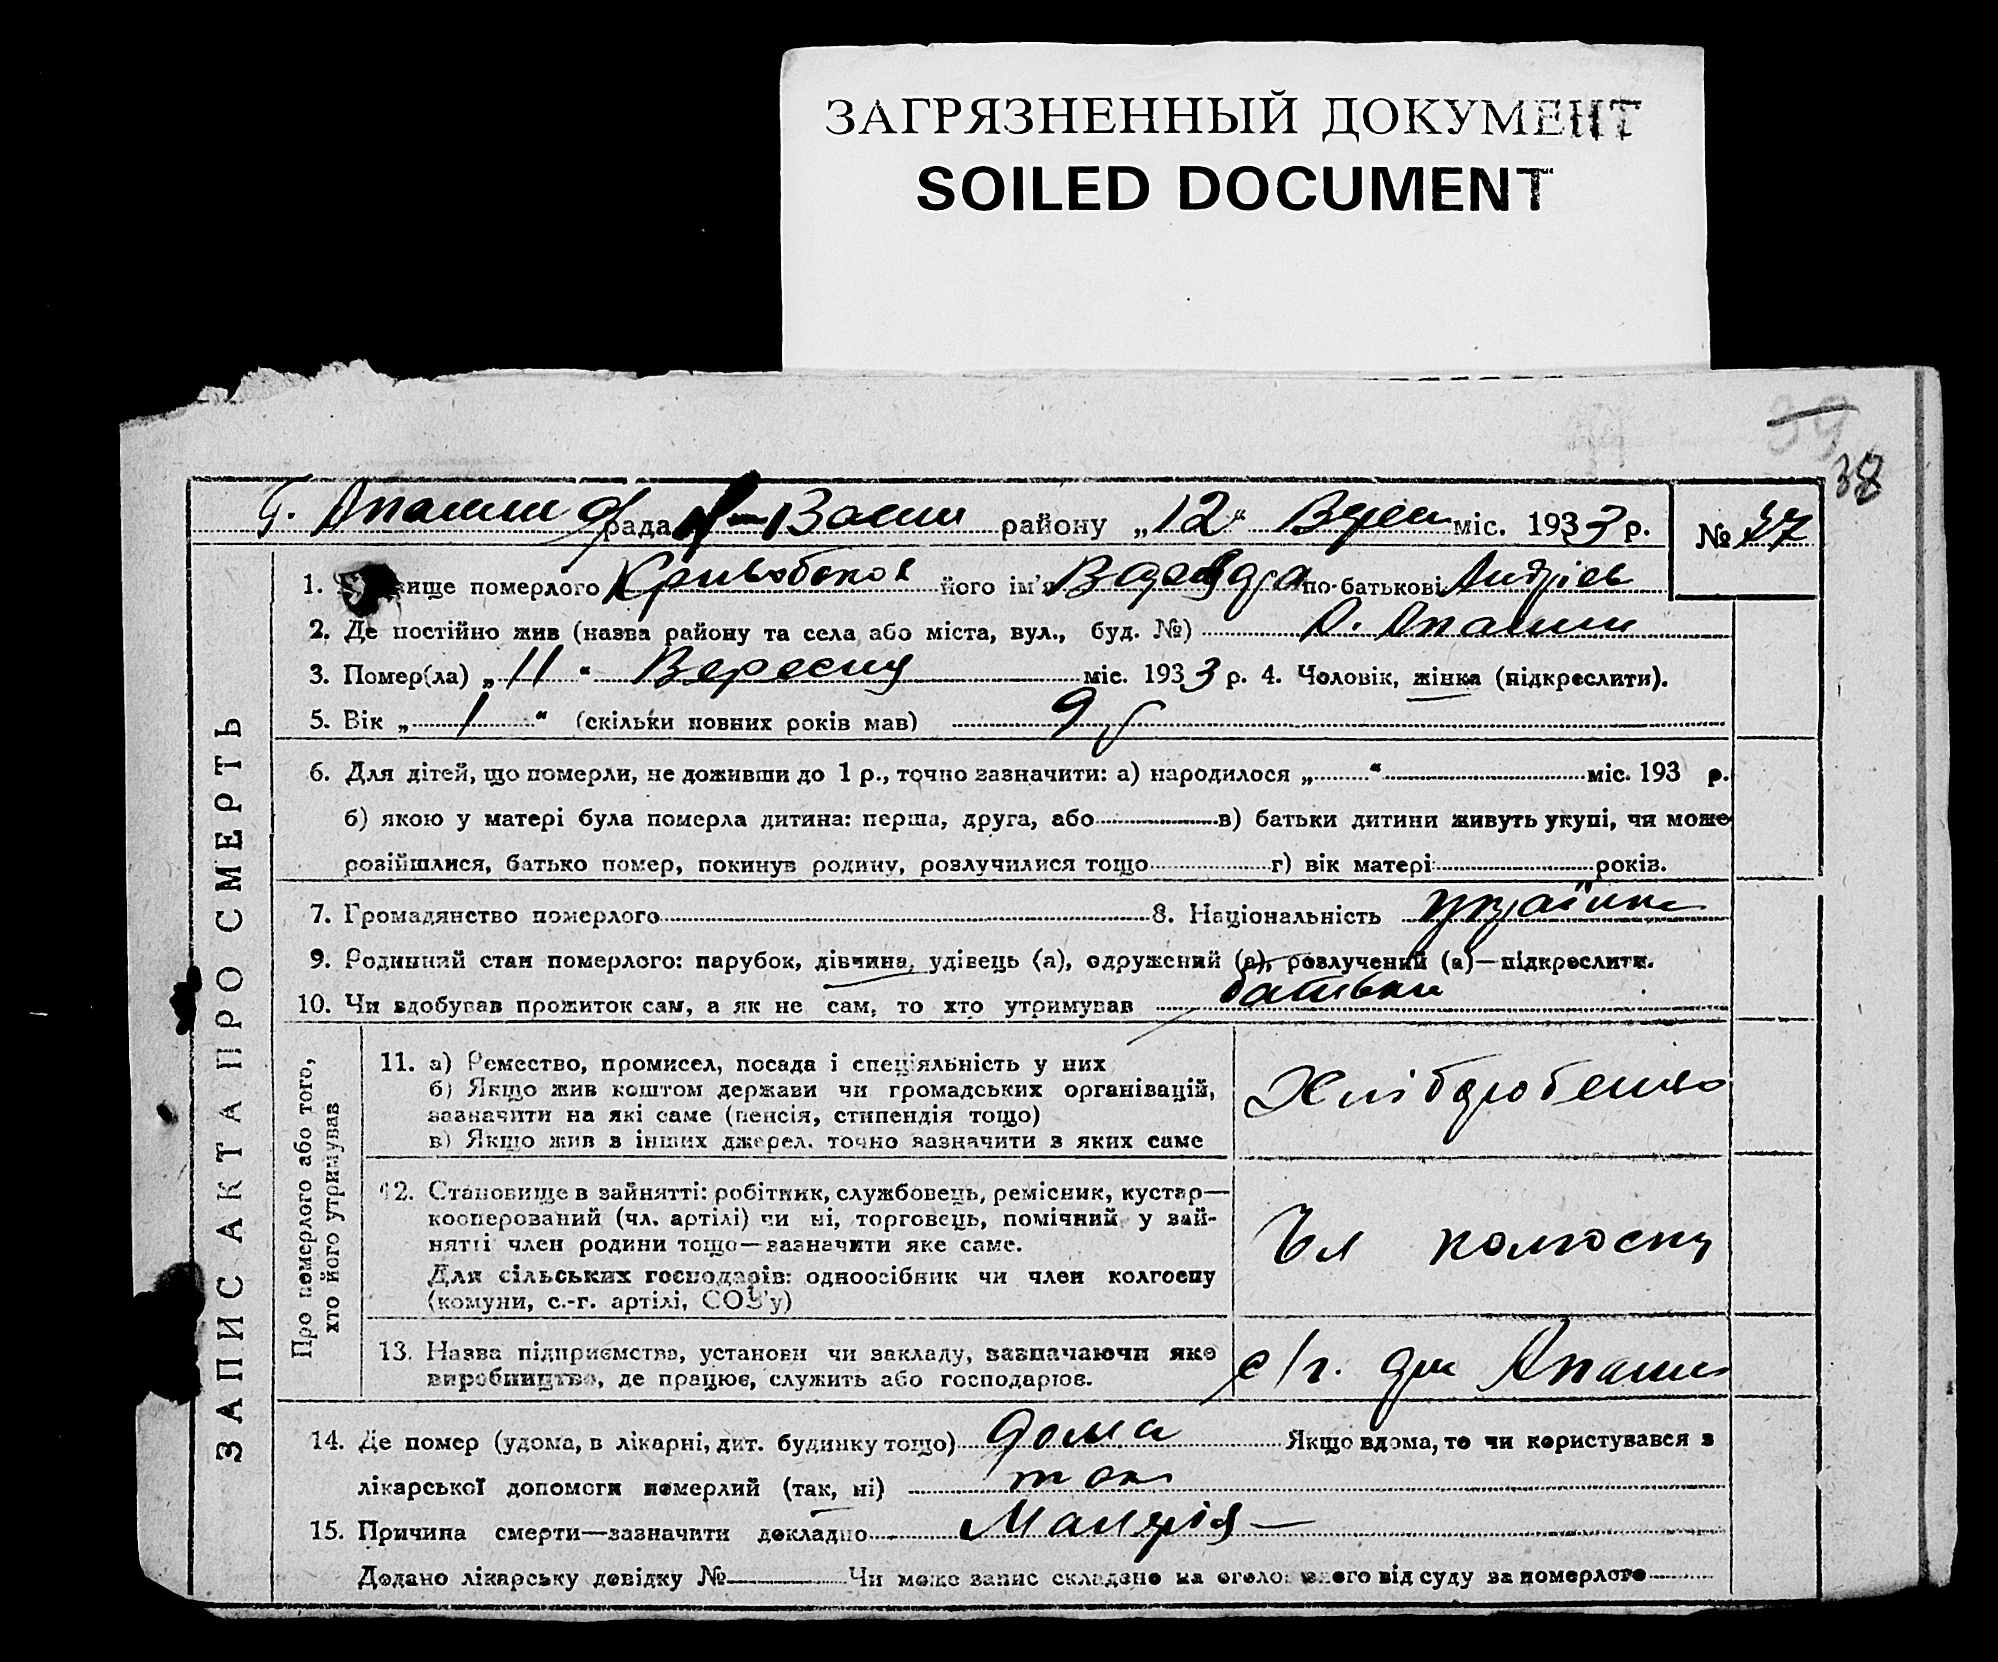 ЗАГРЯЗНЕННЫЙ ДОКУМЕНТ
SOILED DOCUMENT
39
38
рада району „12“ Верес міс. 1933 р. № 37
1. вище померлого його ім'я по-батькові Андріев
2. Де постійно жив (назва району та села або міста, вул., буд. №)
3. Помер(ла) „11“ Вересня міс. 1933 р. 4. Чоловік, жінка (підкреслити).
5. Вік „1“ (скільки повних років мав)
6. Для дітей, що померли, не доживши до 1 р., точно зазначити: а) народилося „ “ міс. 193 р.
б) якою у матері була померла дитина: перша, друга, або в) батьки дитини живуть укупі, чи може
розійшлися, батько помер, покинув родину, розлучилися тощо г) вік матері років.
7. Громадянство померлого 8. Національність україн
9. Родинний стан померлого: парубок, дівчина, удівець (а), одружений (а), розлучений (а)—підкреслити.
10. Чи здобував прожиток сам, а як не сам, то хто утримував батьки
ЗАПИС АКТА ПРО СМЕРТЬ
Про померлого або того,
хто його утримував
11. а) Ремество, промисел, посада і спеціяльність у них
б) Якщо жив коштом держави чи громадських організацій,
зазначити на які саме (пенсія, стипендія тощо)
в) Якщо жив з інших джерел, точно зазначити з яких саме
Хліборобство
12. Становище в зайнятті: робітник, службовець, ремісник, кустар—
кооперований (чл. артілі) чи ні, торговець, помічний у зай-
нятті член родини тощо—зазначити яке саме.
Для сільських господарів: одноосібник чи член колгоспу
(комуни, с.-г. артілі, СОЗ'у)
Чл колгоспу
13. Назва підприємства, установи чи закладу, зазначаючи яке
виробництво, де працює, служить або господарює.
с/г.
14. Де помер (удома, в лікарні, дит. будинку тощо) дома Якщо вдома, то чи користувався з
лікарської допомоги померлий (так, ні) так
15. Причина смерти—зазначити докладно Малярія
Додано лікарську довідку № Чи може запис складено на оголошеного від суду за померлого